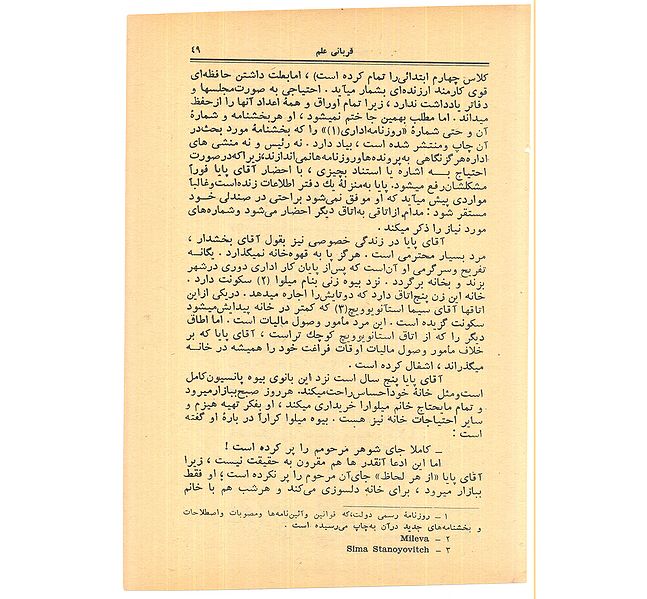 قربانی علم
٤٩
کلاس چهارم ابتدائی‌را تمام کرده است) ، امابعلت داشتن حافظه‌ای
قوی کارمند ارزنده‌ای بشمار میآید . احتیاجی به صورت‌مجلسها و
دفاتر یادداشت ندارد ، زیرا تمام اوراق و همهٔ اعداد آنها را ازحفظ
میداند . اما مطلب بهمین جا ختم نمیشود ، او هربخشنامه و شمارهٔ
آن و حتی شمارهٔ «روزنامه‌اداری(١)» را که بخشنامهٔ مورد بحث‌در
آن چاپ ومنتشر شده است ، بیاد دارد . نه رئیس و نه منشی های
اداره‌هرگزنگاهی به‌پرونده‌هاوروزنامه‌هانمی‌اندازند،زیراکه‌درصورت
احتیاج بــه اشاره یا استناد بچیزی ، با احضار آقای پایا فوراً
مشکلشان‌رفع میشود. پایا به‌منزلهٔ یك دفتر اطلاعات زنده‌است‌وغالباً
مواردی پیش میآید که او موفق نمی‌شود براحتی در صندلی خــود
مستقر شود : مدام‌ازاتاقی به‌اتاق دیگر احضار می‌شود وشماره‌های
مورد نیاز را ذکر میکند .
آقای پایا در زندگی خصوصی نیز بقول آقای بخشدار ،
مرد بسیار محترمی است . هرگز پا به قهوه‌خانه نمیگذارد . یگانــه
تفریح وسرگرمی او آن‌است که پس‌از پایان کار اداری دوری درشهر
بزند و بخانه برگردد . نزد بیوه زنی بنام میلوا (٢) سکونت دارد .
خانه این زن پنج‌اتاق دارد که دوتایش‌را اجاره میدهد . دریکی ازاین
اتاقها آقای سیما استانویوویچ(٣) که کمتر در خانه پیدایش‌میشود
سکونت گزیده است . این مرد مأمور وصول مالیات است . اما اطاق
دیگر را که از اتاق استانویوویچ کوچك تراست ، آقای پایا که بر
خلاف مأمور وصول مالیات اوقات فراغت خود را همیشه در خانــه
میگذراند ، اشغال کرده است .
آقای پایا پنج سال است نزد این بانوی بیوه پانسیون‌کامل
است‌ومثل خانهٔ خوداحساس‌راحت‌میکند. هرروز صبح‌ببازارمیرود
و تمام مایحتاج خانم میلوارا خریداری میکند ، او بفکر تهیه هیزم و
سایر احتیاجات خانه نیز هست . بیوه میلوا کراراً در بارهٔ او گفته
است :
ــ کاملا جای شوهر مرحومم را پر کرده است !
اما این ادعا آنقدر ها هم مقرون به حقیقت نیست ، زیرا
آقای پایا «از هر لحاظ» جای‌آن مرحوم را پر نکرده است ؛ او فقط
ببازار میرود ، برای خانه دلسوزی می‌کند و هرشب هم با خانم
١ ــ روزنامهٔ رسمی دولت،که قوانین وآئین‌نامه‌ها ومصوبات واصطلاحات
و بخشنامه‌های جدید درآن به‌چاپ می‌رسیده است .
٢ ــ Mileva
٣ ــ Sima Stanoyovitch